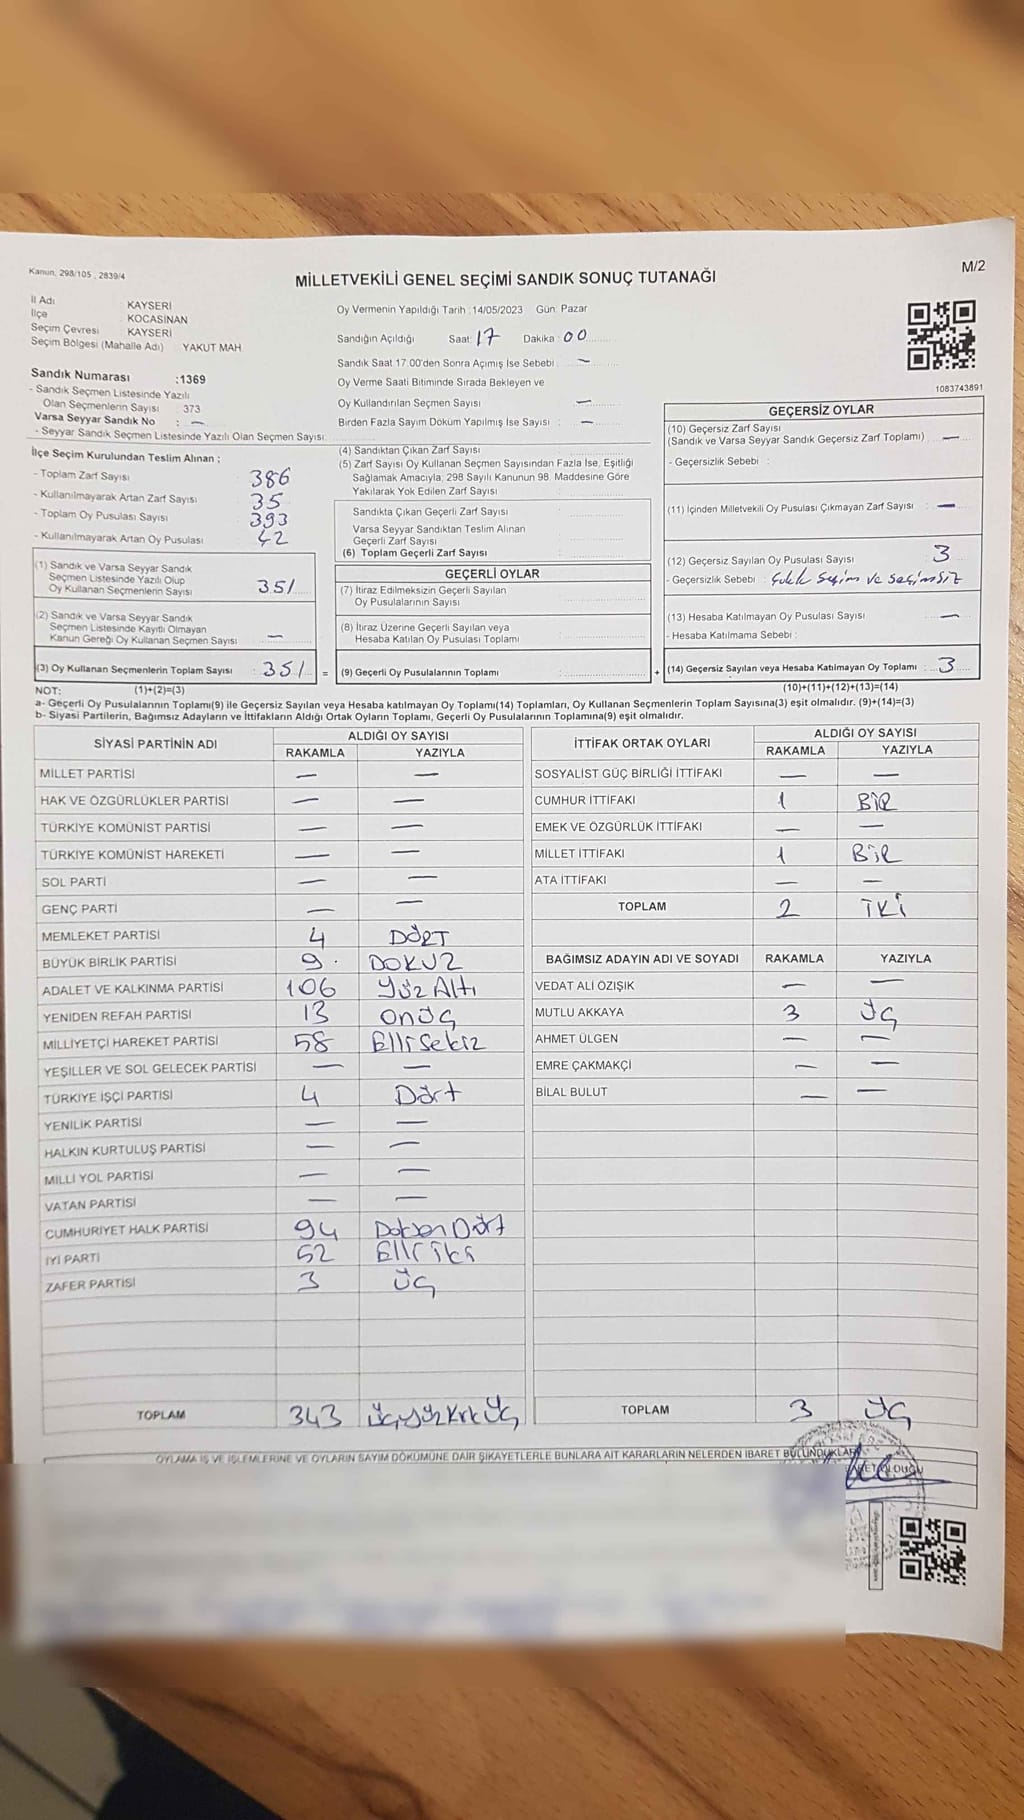 Kanun, 298/105 , 2839/4
MİLLETVEKİLİ GENEL SEÇİMİ SANDIK SONUÇ TUTANAĞI
M/2
İl Adı KAYSERİ
İlçe KOCASİNAN
Seçim Çevresi KAYSERİ
Seçim Bölgesi (Mahalle Adı) YAKUT MAH
Sandık Numarası :1369
- Sandık Seçmen Listesinde Yazılı
Olan Seçmenlerin Sayısı : 373
Varsa Seyyar Sandık No : —
- Seyyar Sandık Seçmen Listesinde Yazılı Olan Seçmen Sayısı:
Oy Vermenin Yapıldığı Tarih :14/05/2023 Gün: Pazar
Sandığın Açıldığı Saat: 17 Dakika : 00
Sandık Saat 17:00'den Sonra Açımış İse Sebebi : —
Oy Verme Saati Bitiminde Sırada Bekleyen ve
Oy Kullandırılan Seçmen Sayısı : —
Birden Fazla Sayım Döküm Yapılmış İse Sayısı : —
1083743891
İlçe Seçim Kurulundan Teslim Alınan ;
- Toplam Zarf Sayısı 386
- Kullanılmayarak Artan Zarf Sayısı 35
- Toplam Oy Pusulası Sayısı 393
- Kullanılmayarak Artan Oy Pusulası 42
(1) Sandık ve Varsa Seyyar Sandık
Seçmen Listesinde Yazılı Olup
Oy Kullanan Seçmenlerin Sayısı : 351
(2) Sandık ve Varsa Seyyar Sandık
Seçmen Listesinde Kayıtlı Olmayan
Kanun Gereği Oy Kullanan Seçmen Sayısı : —
(3) Oy Kullanan Seçmenlerin Toplam Sayısı : 351 =
(4) Sandıktan Çıkan Zarf Sayısı
(5) Zarf Sayısı Oy Kullanan Seçmen Sayısından Fazla İse, Eşitliği
Sağlamak Amacıyla; 298 Sayılı Kanunun 98. Maddesine Göre
Yakılarak Yok Edilen Zarf Sayısı
Sandıkta Çıkan Geçerli Zarf Sayısı
Varsa Seyyar Sandıktan Teslim Alınan
Geçerli Zarf Sayısı
(6) Toplam Geçerli Zarf Sayısı
GEÇERLİ OYLAR
(7) İtiraz Edilmeksizin Geçerli Sayılan
Oy Pusulalarının Sayısı
(8) İtiraz Üzerine Geçerli Sayılan veya
Hesaba Katılan Oy Pusulası Toplamı
(9) Geçerli Oy Pusulalarının Toplamı : +
GEÇERSİZ OYLAR
(10) Geçersiz Zarf Sayısı
(Sandık ve Varsa Seyyar Sandık Geçersiz Zarf Toplamı) : —
- Geçersizlik Sebebi :
(11) İçinden Milletvekili Oy Pusulası Çıkmayan Zarf Sayısı : —
(12) Geçersiz Sayılan Oy Pusulası Sayısı : 3
- Geçersizlik Sebebi : Çift Seçim ve seçimsiz
(13) Hesaba Katılmayan Oy Pusulası Sayısı : —
- Hesaba Katılmama Sebebi :
(14) Geçersiz Sayılan veya Hesaba Katılmayan Oy Toplamı : 3
NOT: (1)+(2)=(3) (10)+(11)+(12)+(13)=(14)
a- Geçerli Oy Pusulalarının Toplamı(9) ile Geçersiz Sayılan veya Hesaba katılmayan Oy Toplamı(14) Toplamları, Oy Kullanan Seçmenlerin Toplam Sayısına(3) eşit olmalıdır. (9)+(14)=(3)
b- Siyasi Partilerin, Bağımsız Adayların ve İttifakların Aldığı Ortak Oyların Toplamı, Geçerli Oy Pusulalarının Toplamına(9) eşit olmalıdır.
SİYASİ PARTİNİN ADI ALDIĞI OY SAYISI
RAKAMLA YAZIYLA
MİLLET PARTİSİ — —
HAK VE ÖZGÜRLÜKLER PARTİSİ — —
TÜRKİYE KOMÜNİST PARTİSİ — —
TÜRKİYE KOMÜNİST HAREKETİ — —
SOL PARTİ — —
GENÇ PARTİ — —
MEMLEKET PARTİSİ 4 DÖRT
BÜYÜK BİRLİK PARTİSİ 9 DOKUZ
ADALET VE KALKINMA PARTİSİ 106 Yüz Altı
YENİDEN REFAH PARTİSİ 13 onüç
MİLLİYETÇİ HAREKET PARTİSİ 58 Elli Sekiz
YEŞİLLER VE SOL GELECEK PARTİSİ — —
TÜRKİYE İŞÇİ PARTİSİ 4 Dört
YENİLİK PARTİSİ — —
HALKIN KURTULUŞ PARTİSİ — —
MİLLİ YOL PARTİSİ — —
VATAN PARTİSİ — —
CUMHURİYET HALK PARTİSİ 94 Doksen Dört
İYİ PARTİ 52 Elli iki
ZAFER PARTİSİ 3 ÜÇ
TOPLAM 343 üçyüz Kırk Üç
İTTİFAK ORTAK OYLARI ALDIĞI OY SAYISI
RAKAMLA YAZIYLA
SOSYALİST GÜÇ BİRLİĞİ İTTİFAKI — —
CUMHUR İTTİFAKI 1 BİR
EMEK VE ÖZGÜRLÜK İTTİFAKI — —
MİLLET İTTİFAKI 1 BİR
ATA İTTİFAKI — —
TOPLAM 2 İKİ
BAĞIMSIZ ADAYIN ADI VE SOYADI RAKAMLA YAZIYLA
VEDAT ALİ ÖZIŞIK — —
MUTLU AKKAYA 3 ÜÇ
AHMET ÜLGEN — —
EMRE ÇAKMAKÇİ — —
BİLAL BULUT — —
TOPLAM 3 ÜÇ
OYLAMA İŞ VE İŞLEMLERİNE VE OYLARIN SAYIM DÖKÜMÜNE DAİR ŞİKAYETLERLE BUNLARA AİT KARARLARIN NELERDEN İBARET BULUNDUKLARI